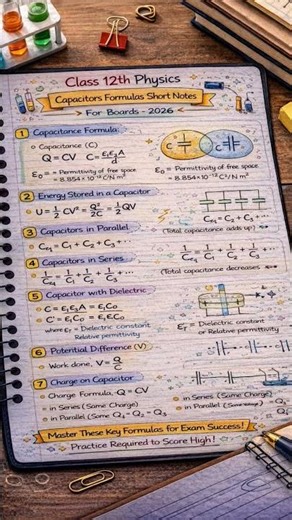 Class 12th Physics
Capacitors Formulas Short Notes
For Boards - 2026
1 Capacitance Formula:
Capacitance (C)
Q = CV C = E₁E₂A/d
E₀ = = Permittivity of free space
= 8.854 × 10⁻¹² C/N m²
E₀ = Permittivity of free space
= 8.854 × 10⁻¹² C²/N m²
2 Energy Stored in a Capacitor
U = ½ CV² = Q²/2C = ½QV
3 Capacitors in Parallel
Ceq = C₁ + C₂ + C₃ + ...
Ceq = C₁ + C₂ + C₃ + ...
(Total capacitance adds up)
4 Capacitors in Series
1/Ceq = 1/C₁ + 1/C₂ + 1/C₃ + ...
(Total capacitance decreases
5 Capacitor with Dielectric
where Eᵣ = Dielectric constant
Relative permittivity
Eᵣ = Dielectric constant
or Relative permittivity
6 Potential Difference (V)
Work done, V = Q/C
7 Charge on Capacitor
Charge Formula, Q = CV
in Series (Same Charge)
in Parallel (Same
in Series (Same Charge)
in Parallel
Master These Key Formulas for Exam Success!
Practice Required to Score High!